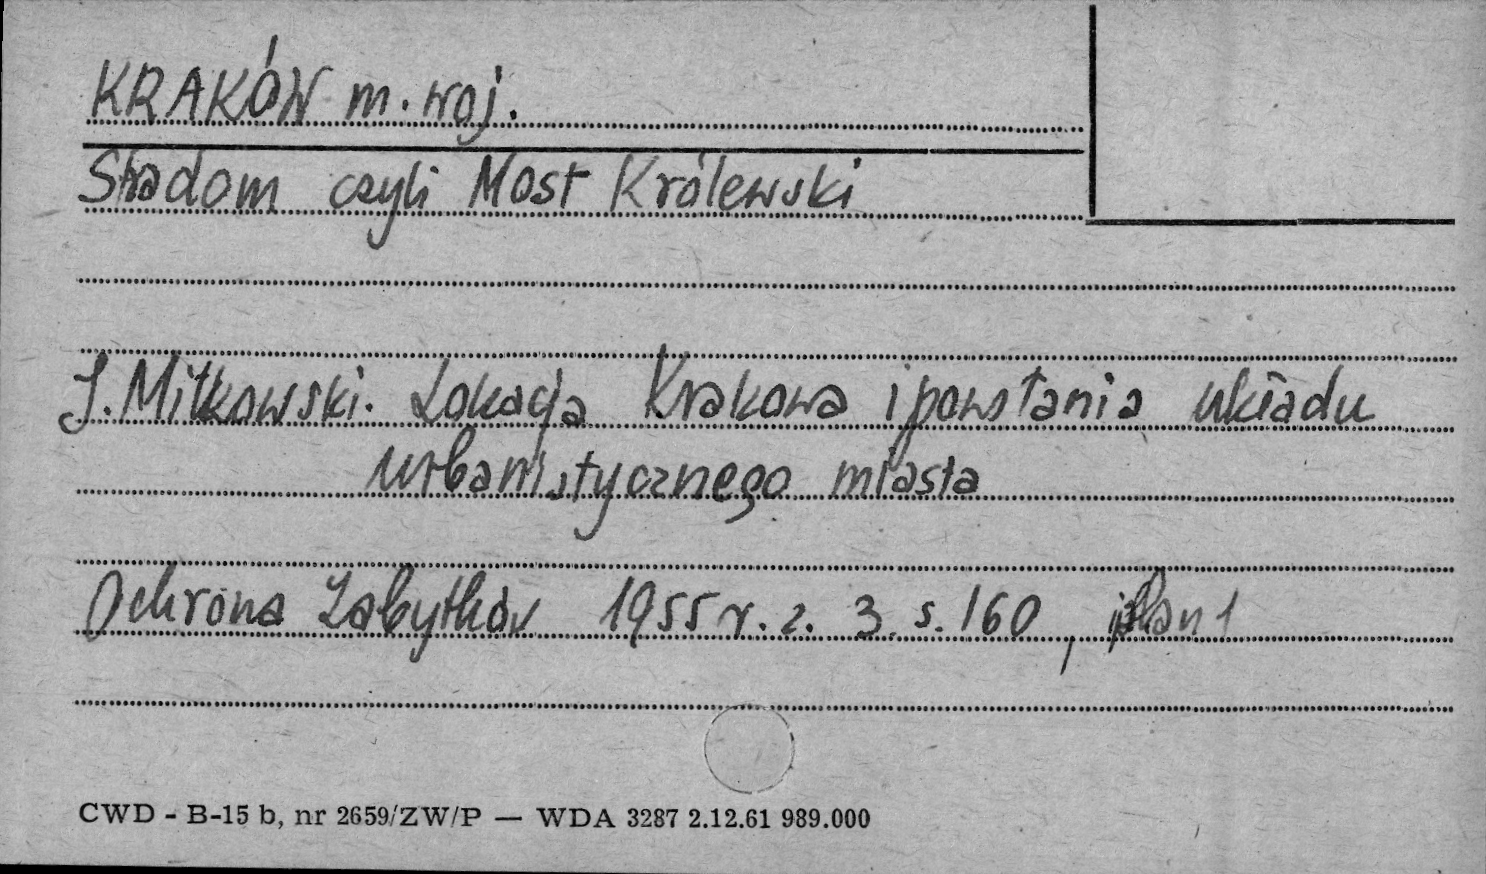 KRAKÓW m. woj.
Stradom czyli Most Królewski
J. Mitkowski. Lokacja Krakowa i powstania układu
urbanistycznego miasta
Ochrona Zabytków 1955 r. z. 3. s. 160, plan 1
CWD - B-15 b, nr 2659/ZW/P — WDA 3287 2.12.61 989.000